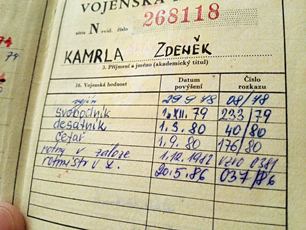 VOJENSKÁ
série N evid. číslo 268118
KAMRLA ZDENĚK
3. Příjmení a jméno (akademický titul)
16. Vojenská hodnost Datum povýšení Číslo rozkazu
vojín 29.9.78 08/78
svobodník 1.XII.79 233/79
desátník 1.5.80 40/80
četař 1.9.80 176/80
rotný v záloze 1.12.1982 0381
rotmistr v z. 20.5.86 037/86